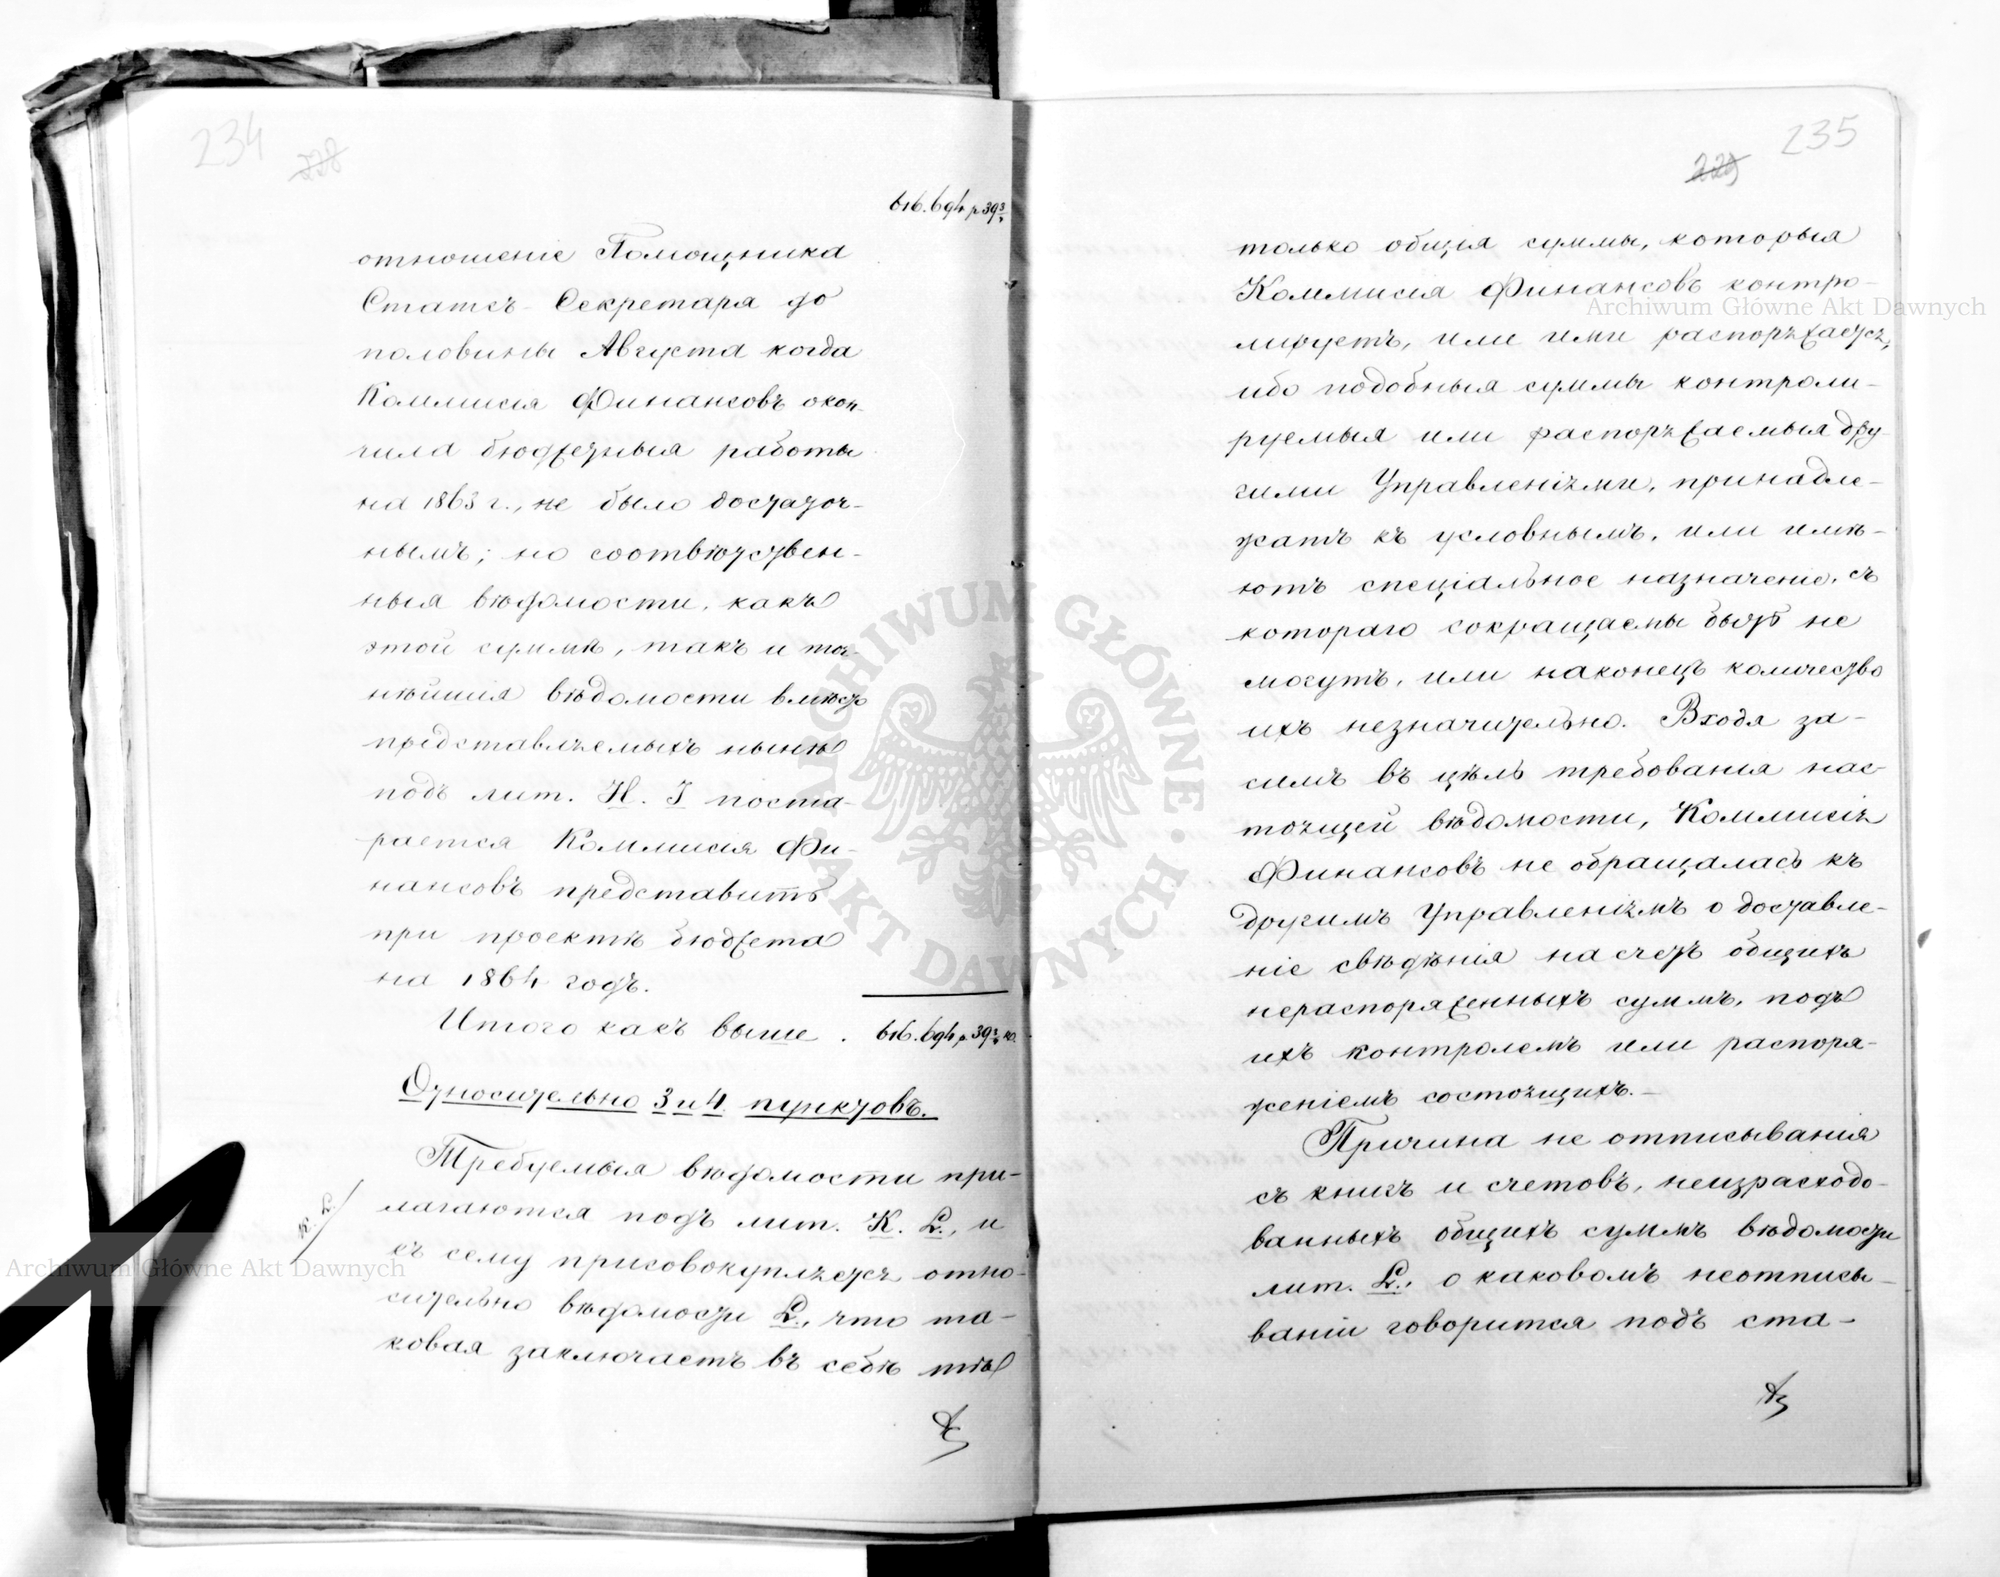 234
228
616.694 р 39 3/4
отношеніе Помощника
Статсъ-Секретаря до
половины Августа когда
Коммисія Финансовъ окон-
чила бюджетныя работы
на 1863 г., не было достаточ-
нымъ; но соотвѣтствен-
ныя вѣдомости, какъ
этой суммѣ, такъ и точ-
нѣйшія вѣдомости вмѣсто
представляемыхъ нынѣ
подъ лит. H. I поста-
рается Коммисія Фи-
нансовъ представить
при проектѣ бюджета
на 1864 годъ.
Итого какъ выше . 616.694 р 39 3/4 ко.
Относительно 3 и 4. пунктовъ.
Требуемыя вѣдомости при-
K. L.
лагаются подъ лит. K. L., и
къ сему присовокупляется отно-
сительно вѣдомости L., что та-
ковая заключаетъ въ себѣ тѣ
235
229
только общія суммы, которыя
Коммисія Финансовъ контро-
лируетъ, или ими распоряжается,
ибо подобныя суммы контроли-
руемыя или распоряжаемыя дру-
гими Управленіями, принадле-
жатъ къ условнымъ, или имѣ-
ютъ спеціальное назначеніе, съ
котораго сокращаемы быть не
могутъ, или наконецъ количество
ихъ незначительно. Входя за-
симъ въ цѣль требованія нас-
тоящей вѣдомости, Коммисія
Финансовъ не обращалась къ
другимъ Управленіямъ о доставле-
ніе свѣдѣнія на счетъ общихъ
нераспоряженныхъ суммъ, подъ
ихъ контролемъ или распоря-
женіемъ состоящихъ.—
Причина не отписыванія
съ книгъ и счетовъ, неизрасходо-
ванныхъ общихъ суммъ вѣдомости
лит. L.; о каковомъ неотписы-
ваніи говорится подъ ста-
Archiwum Główne Akt Dawnych
Archiwum Główne Akt Dawnych
ARCHIWUM GŁÓWNE AKT DAWNYCH